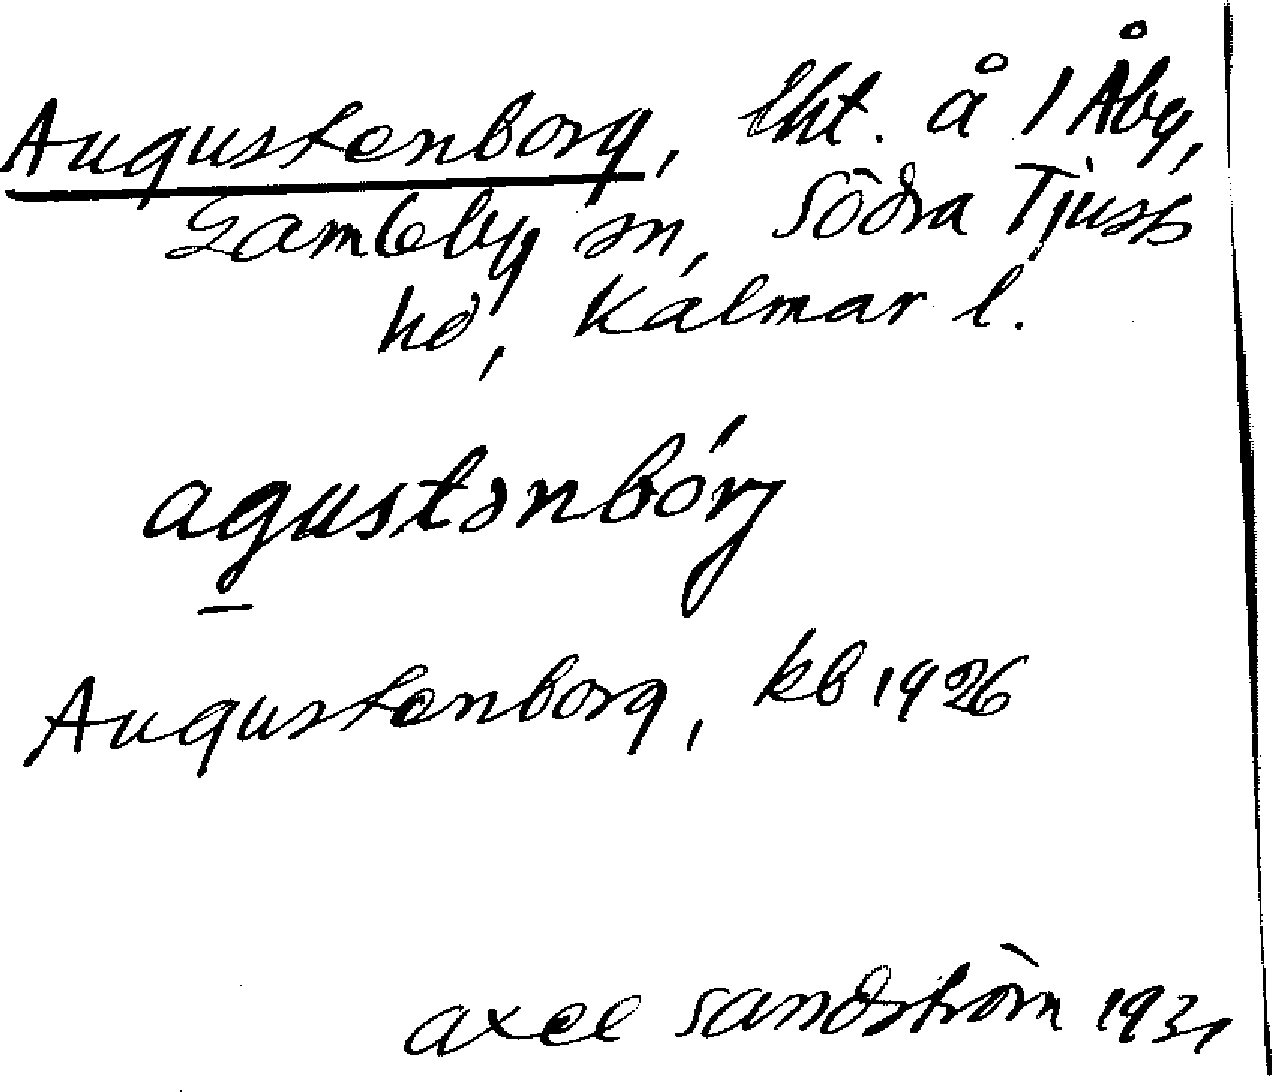 Augustenborg, lht. å 1 Åby,
Gamleby sn, Södra Tjusts
hd, Kalmar l.
agustənbórj
Augustenborg, kb 1926
axel sandström 1931